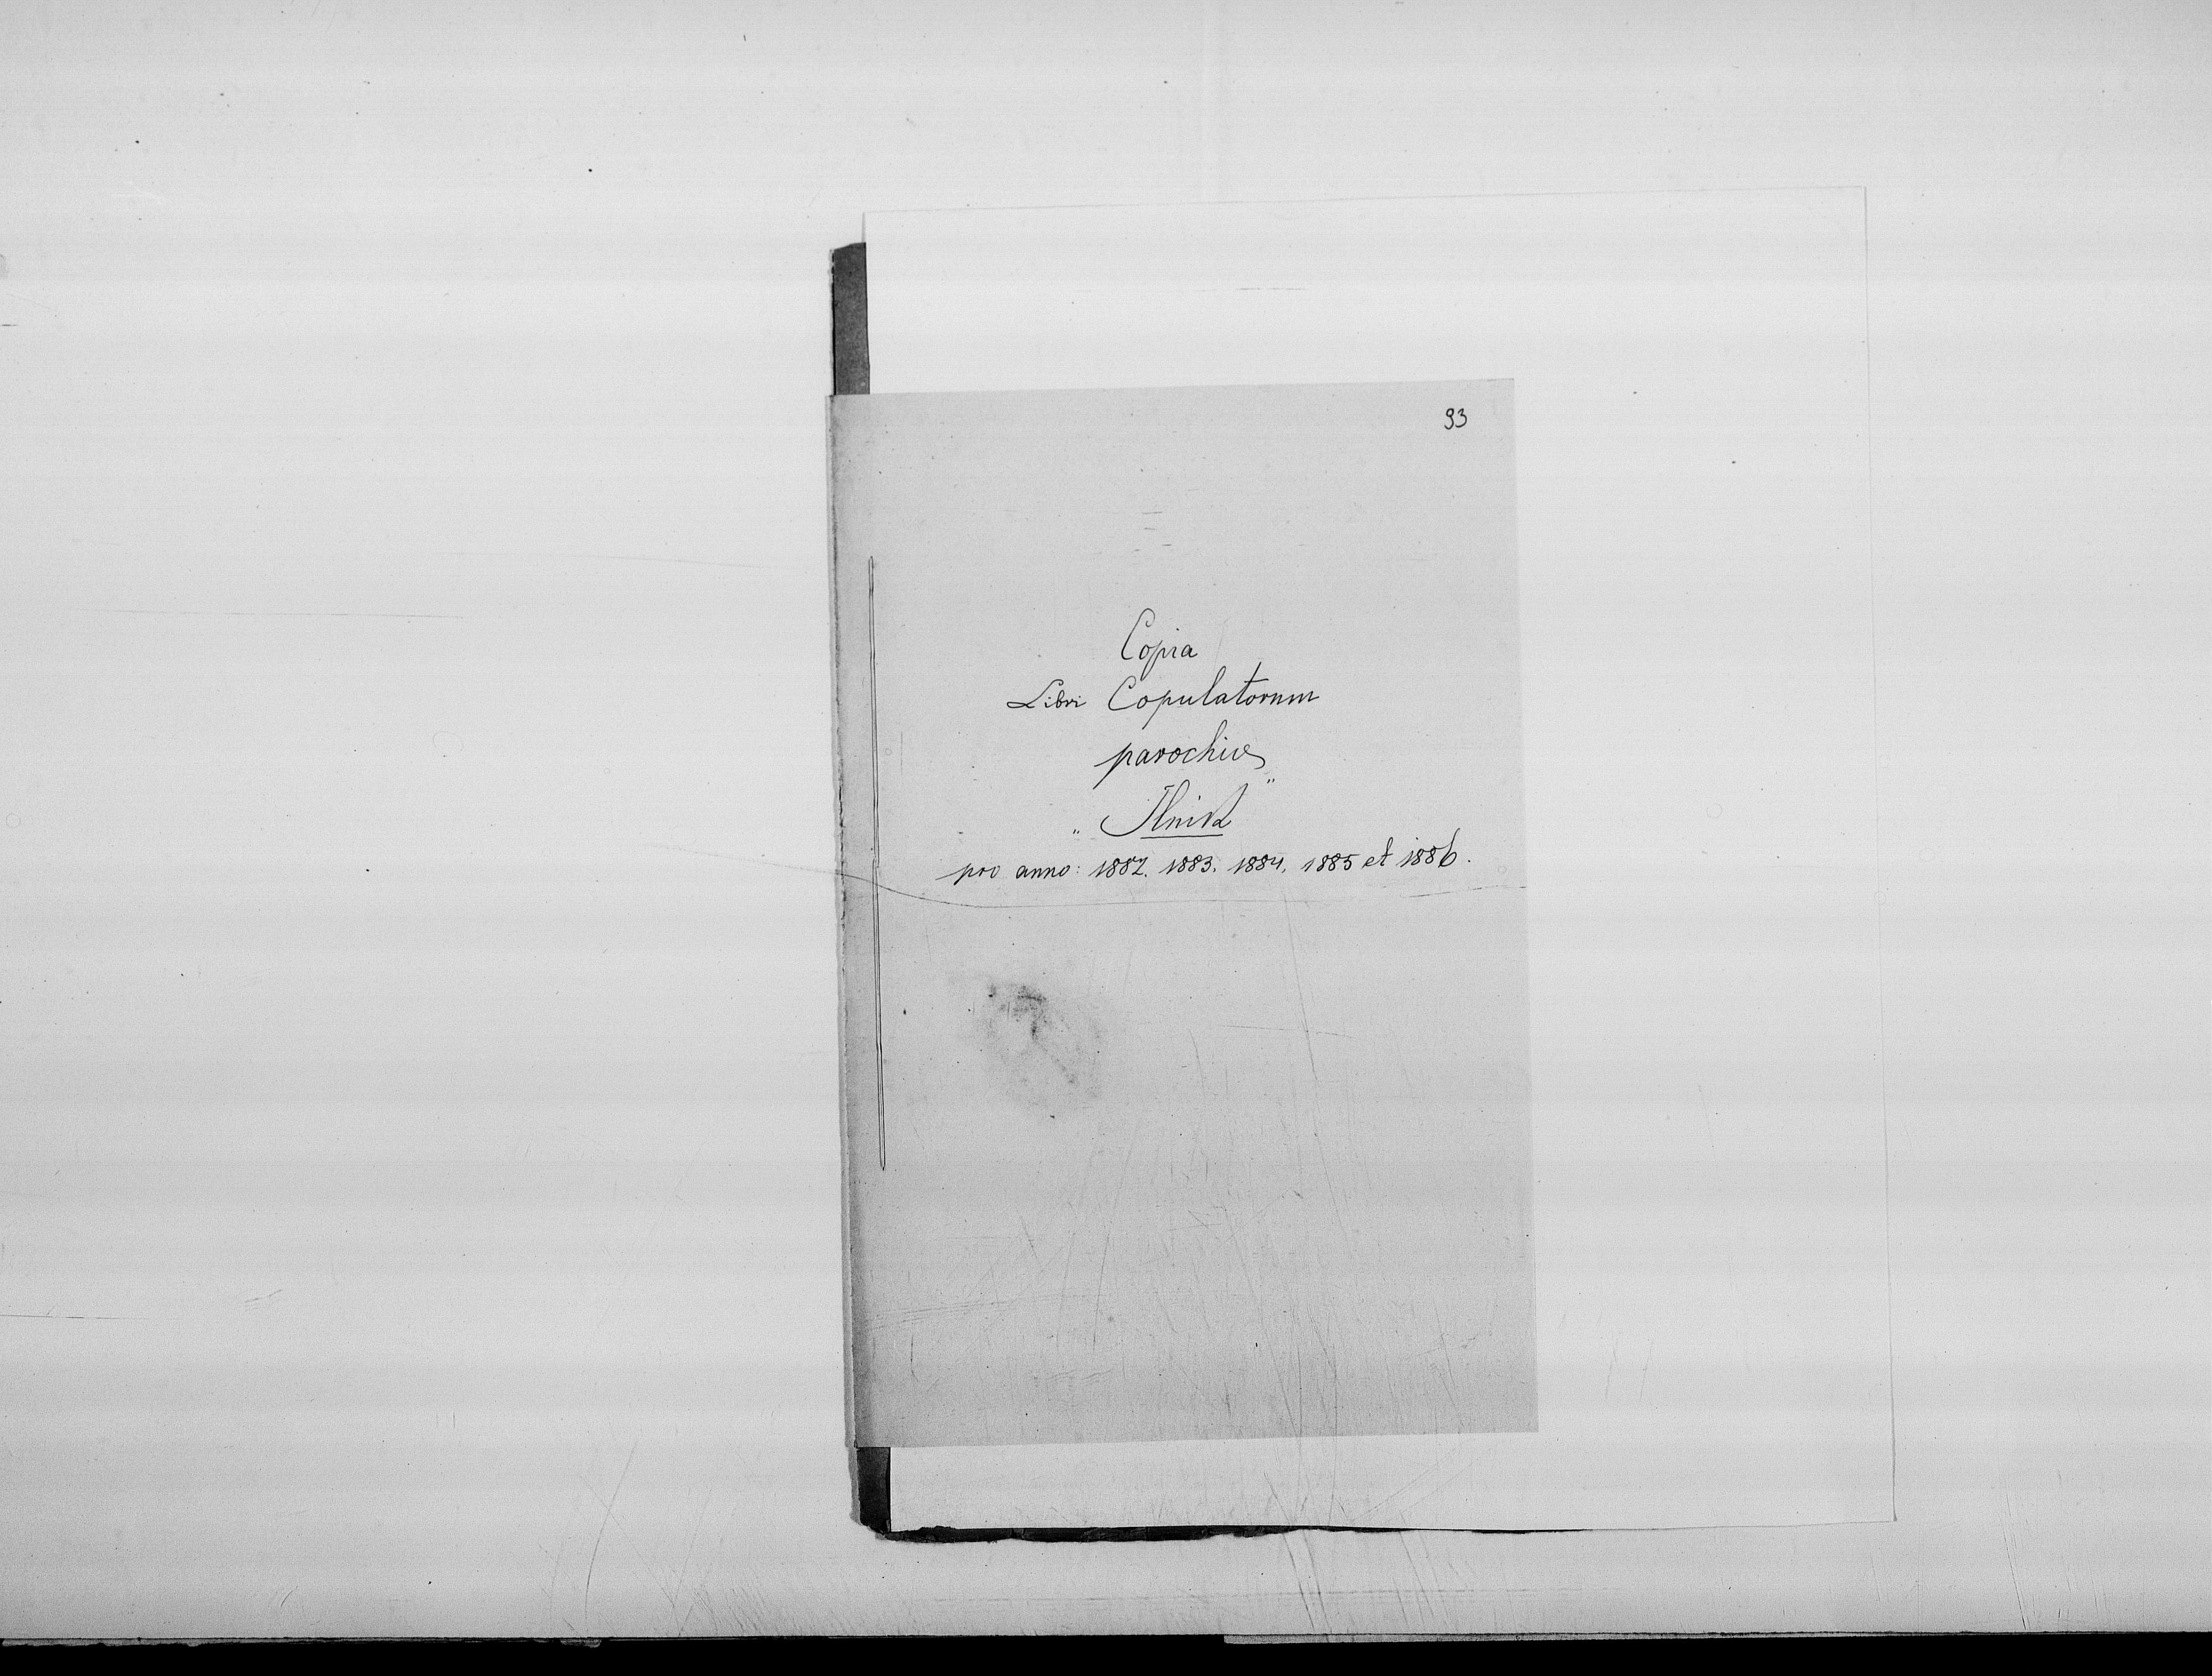 93
Copia
Libri Copulatorum
parochiæ
„Ilnik"
pro anno: 1882. 1883. 1884. 1885 et 1886.